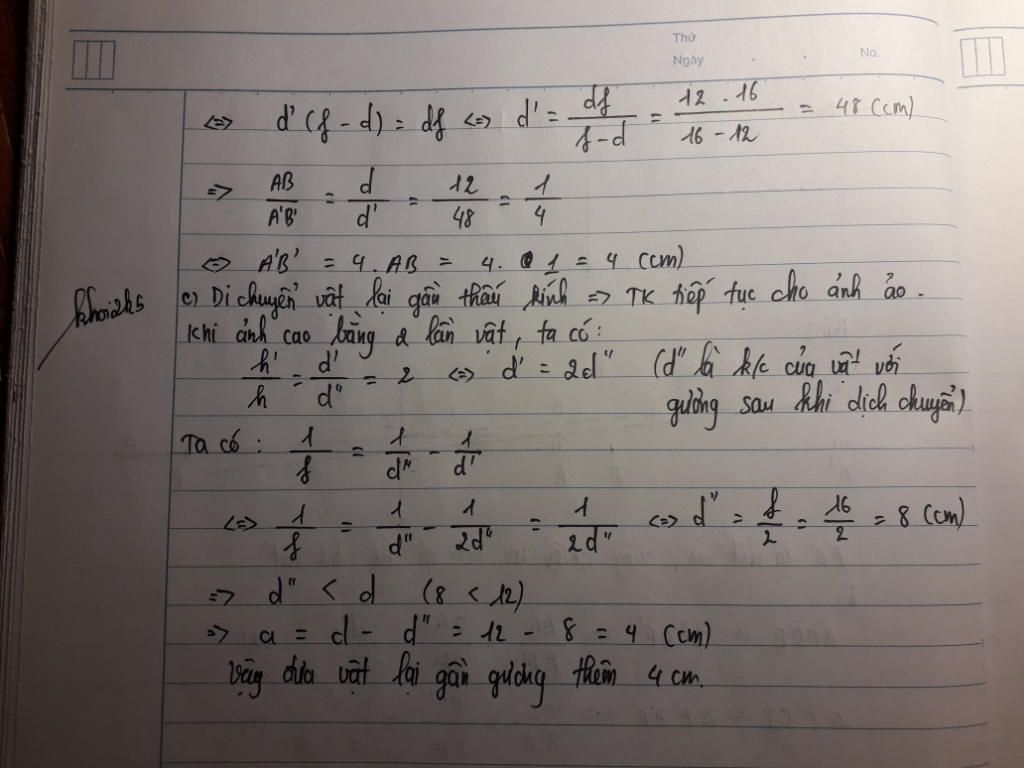 Thứ
Ngày
No.
<=> d'(f - d) = df <=> d' = df/(f - d) = (12 . 16)/(16 - 12) = 48 (cm)
=> AB/A'B' = d/d' = 12/48 = 1/4
<=> A'B' = 4. AB = 4. 1 = 4 (cm)
khoi2k5
c) Di chuyển vật lại gần thấu kính => TK tiếp tục cho ảnh ảo.
Khi ảnh cao bằng 2 lần vật, ta có:
h'/h = d'/d" = 2 <=> d' = 2d" (d" là k/c của vật với
gương sau khi dịch chuyển)
Ta có: 1/f = 1/d" - 1/d'
<=> 1/f = 1/d" - 1/2d" = 1/2d" <=> d" = f/2 = 16/2 = 8 (cm)
=> d" < d (8 < 12)
=> a = d - d" = 12 - 8 = 4 (cm)
Vậy đưa vật lại gần gương thêm 4 cm.